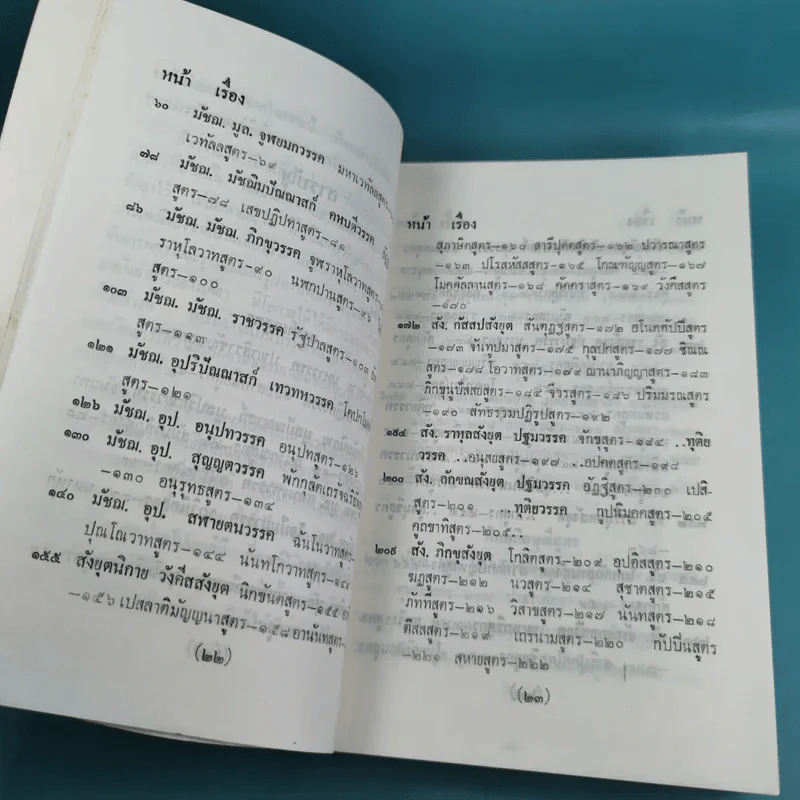 หน้า เรื่อง
๖๐ มัชฌ. มูล. จูฬยมกวรรค มหาเวทัลลสูตร—
เวทัลลสูตร—๖๙
๗๘ มัชฌ. มัชฌิมปัณณาสก์ คหบดีวรรค
สูตร—๗๘ เสขปฏิปทาสูตร—๘๑
๘๖ มัชฌ. มัชฌ. ภิกขุวรรค จูฬราหุโลวาทสูตร—
ราหุโลวาทสูตร—๙๐ นฬกปานสูตร—๙๖
สูตร—๑๐๐
๑๐๓ มัชฌ. มัชฌ. ราชวรรค รัฐปาลสูตร—๑๐๓
สูตร—๑๑๓
๑๒๑ มัชฌ. อุปริปัณณาสก์ เทวทหวรรค
สูตร—๑๒๑
๑๒๖ มัชฌ. อุป. อนุปทวรรค อนุปทสูตร—๑๒๖
๑๓๐ มัชฌ. อุป. สุญญตวรรค
—๑๓๐ อนุรุทธสูตร—๑๓๔
๑๔๐ มัชฌ. อุป. สฬายตนวรรค ฉันโนวาทสูตร—
ปุณโณวาทสูตร—๑๔๔ นันทโกวาทสูตร—๑๔๙
๑๕๕ สังยุตนิกาย วังคีสสังยุต นิกขันตสูตร—๑๕๕
—๑๕๖ เปสลาติมัญญนาสูตร—๑๕๘ อานันทสูตร—
(๒๒)
หน้า เรื่อง
สุภาษิตสูตร—๑๖๐ สารีปุตตสูตร—๑๖๒ ปวารณาสูตร
—๑๖๓ ปโรสหัสสสูตร—๑๖๕ โกณฑัญญสูตร—๑๖๗
โมคคัลลานสูตร—๑๖๘ คัคคราสูตร—๑๖๙ วังคีสสูตร
—๑๗๐
๑๗๒ สัง. กัสสปสังยุต สันตุฏฐสูตร—๑๗๒ อโนตตัปปีสูตร
—๑๗๓ จันทูปมาสูตร—๑๗๕ กุลูปกสูตร—๑๗๗ ชิณณ
สูตร—๑๗๘ โอวาทสูตร—๑๗๙ ฌานาภิญญาสูตร—๑๘๓
ภิกขุนูปัสสยสูตร—๑๘๔ จีวรสูตร—๑๘๖ ปรัมมรณสูตร
—๑๙๐ สัทธรรมปฏิรูปสูตร—๑๙๒
๑๙๔ สัง. ราหุลสังยุต ปฐมวรรค จักขุสูตร—๑๙๔ ..ทุติย
วรรค ..อนุสยสูตร—๑๙๗ ..อปคตสูตร—๑๙๘
๒๐๐ สัง. ลักขณสังยุต ปฐมวรรค อัฏฐิสูตร—๒๐๐ เปสิ-
สูตร—๒๐๑ ..ทุติยวรรค กูปนิมุคคสูตร—๒๐๕
คูถขาทิสูตร—๒๐๕..
๒๐๙ สัง. ภิกขุสังยุต โกลิตสูตร—๒๐๙ อุปติสสสูตร—๒๑๐
ฆฏสูตร—๒๑๒ นวสูตร—๒๑๔ สุชาตสูตร—๒๑๕
ภัททิสูตร—๒๑๖ วิสาขสูตร—๒๑๗ นันทสูตร—๒๑๘
ติสสสูตร—๒๑๙ เถรนามสูตร—๒๒๐ กัปปินสูตร
—๒๒๑ สหายสูตร—๒๒๒
(๒๓)